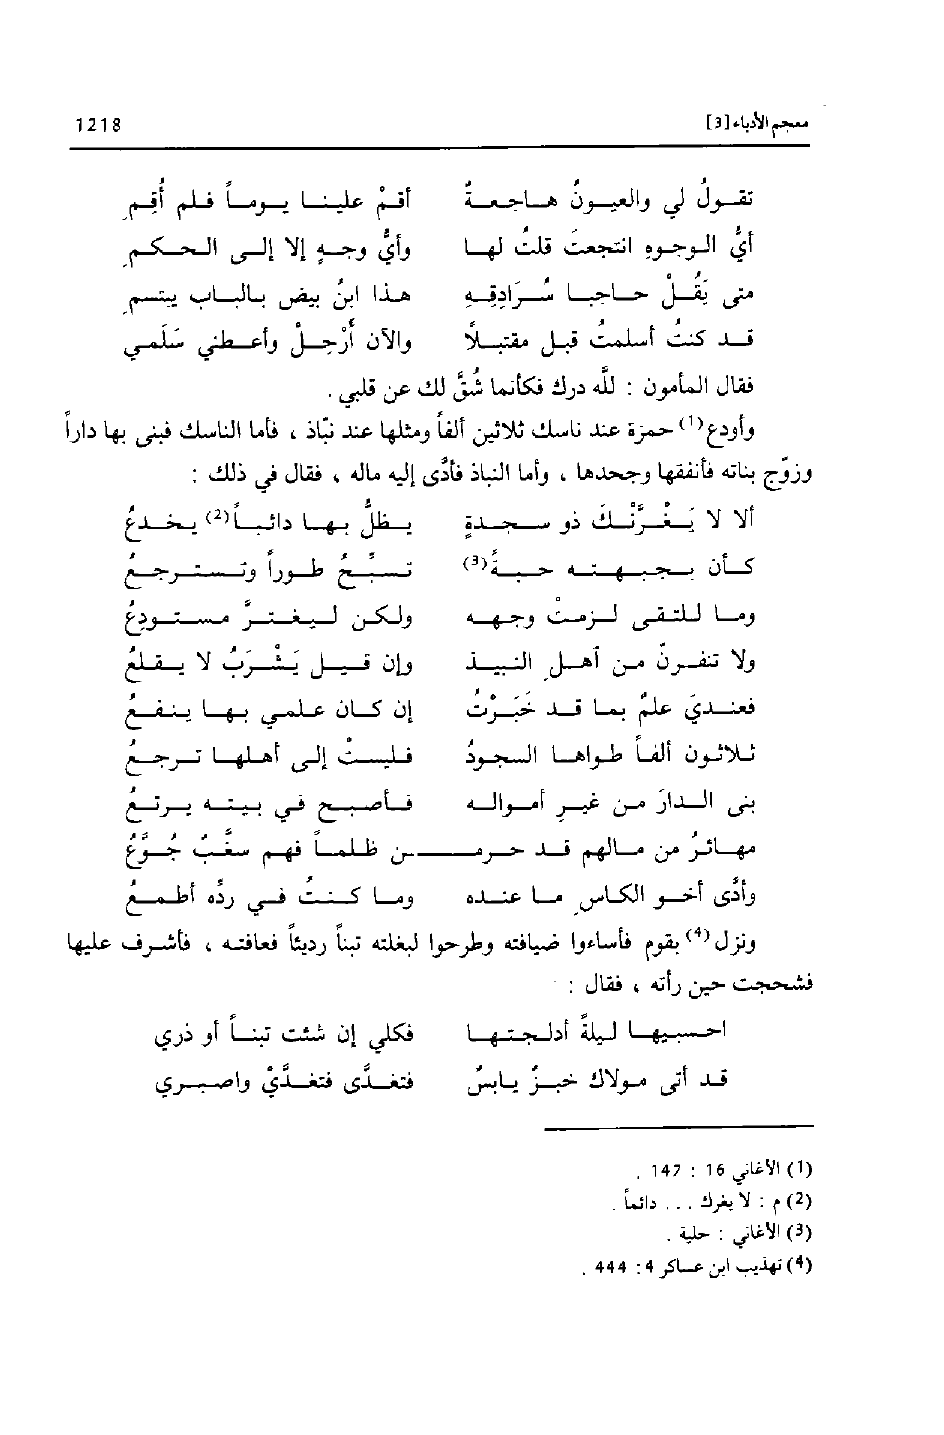 معجم الأدباء [3] 1218
تقولُ لي والعيونُ هاجعةٌ أقمْ علينا يوماً فلم أُقمِ
أيُّ الوجوه انتجعتَ قلتُ لها وأيُّ وجهٍ إلا إلى الحكمِ
متى يَقُلْ حاجبا سُرَادِقِهِ هذا ابنُ بيضٍ بالباب يبتسمِ
قد كنتُ أسلمتُ قبل مقتبلاً والآن أَرْحِلْ وأعطني سَلَمي
فقال المأمون : لله درك فكأنما شُقَّ لك عن قلبي .
وأودع(1) حمزة عند ناسك ثلاثين ألفاً ومثلها عند نبّاذ ، فأما الناسك فبنى بها داراً
وزوّج بناته فأنفقها وجحدها ، وأما النباذ فأدّى إليه ماله ، فقال في ذلك :
ألا لا يَغُرَّنْكَ ذو سجدةٍ يظلُّ بها دائباً(2) يخدعُ
كأن بجبهته حبةً(3) تسبِّحُ طوراً وتسترجعُ
وما للتقى لزمتْ وجهه ولكن ليغترَّ مستودِعُ
ولا تنفرنَّ من أهلِ النبيذ وإن قيل يَشْرَبُ لا يقلعُ
فعندي علمٌ بما قد خَبَرْتُ إن كان علمي بها ينفعُ
ثلاثون ألفاً طواها السجودُ فليستْ إلى أهلها ترجعُ
بنى الدارَ من غير أمواله فأصبح في بيته يرتعُ
مهائرُ من مالهم قد حرمـن ظلماً فهم سغّبٌ جُوَّعُ
وأدَّى أخو الكاسِ ما عنده وما كنتُ في ردِّه أطمعُ
ونزل(4) بقوم فأساءوا ضيافته وطرحوا لبغلته تبناً رديئاً فعافته ، فأشرف عليها
فشحجت حين رأته ، فقال :
احسبيها ليلةً أدلجتها فكلي إن شئت تبناً أو ذري
قد أتى مولاك خبزٌ يابسٌ فتغدَّى فتغدَّيْ واصبري
(1) الأغاني 16 : 147 .
(2) م : لا يغرك . . . دائماً .
(3) الأغاني : حلية .
(4) تهذيب ابن عساكر 4 : 444 .